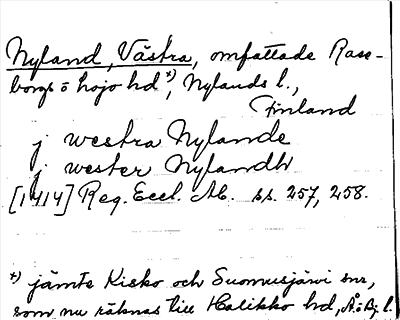 Nyland, Västra, omfattade Rase-
borgs ö hojo hd *), Nylands l.,
Finland
j westra Nylande
j wester Nylandh
[1414] Reg. Eccl. Ab. ss. 257, 258.
*) jämte Kisko och Suomusjärvi snr,
som nu räknas till Halikko hd, Å. o Bj. l.